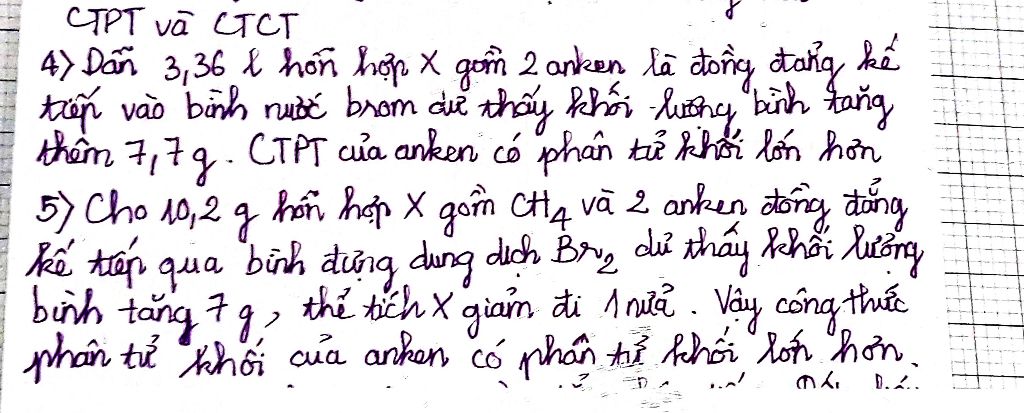 CTPT và CTCT
4) Dẫn 3,36 l hỗn hợp X gồm 2 anken là đồng đẳng kế
tiếp vào bình nước brom dư thấy khối lượng bình tăng
thêm 7,7 g. CTPT của anken có phân tử khối lớn hơn
5) Cho 10,2 g hỗn hợp X gồm CH4 và 2 anken đồng đẳng
kế tiếp qua bình đựng dung dịch Br2 dư thấy khối lượng
bình tăng 7 g, thể tích X giảm đi 1 nửa. Vậy công thức
phân tử khối của anken có phân tử khối lớn hơn.